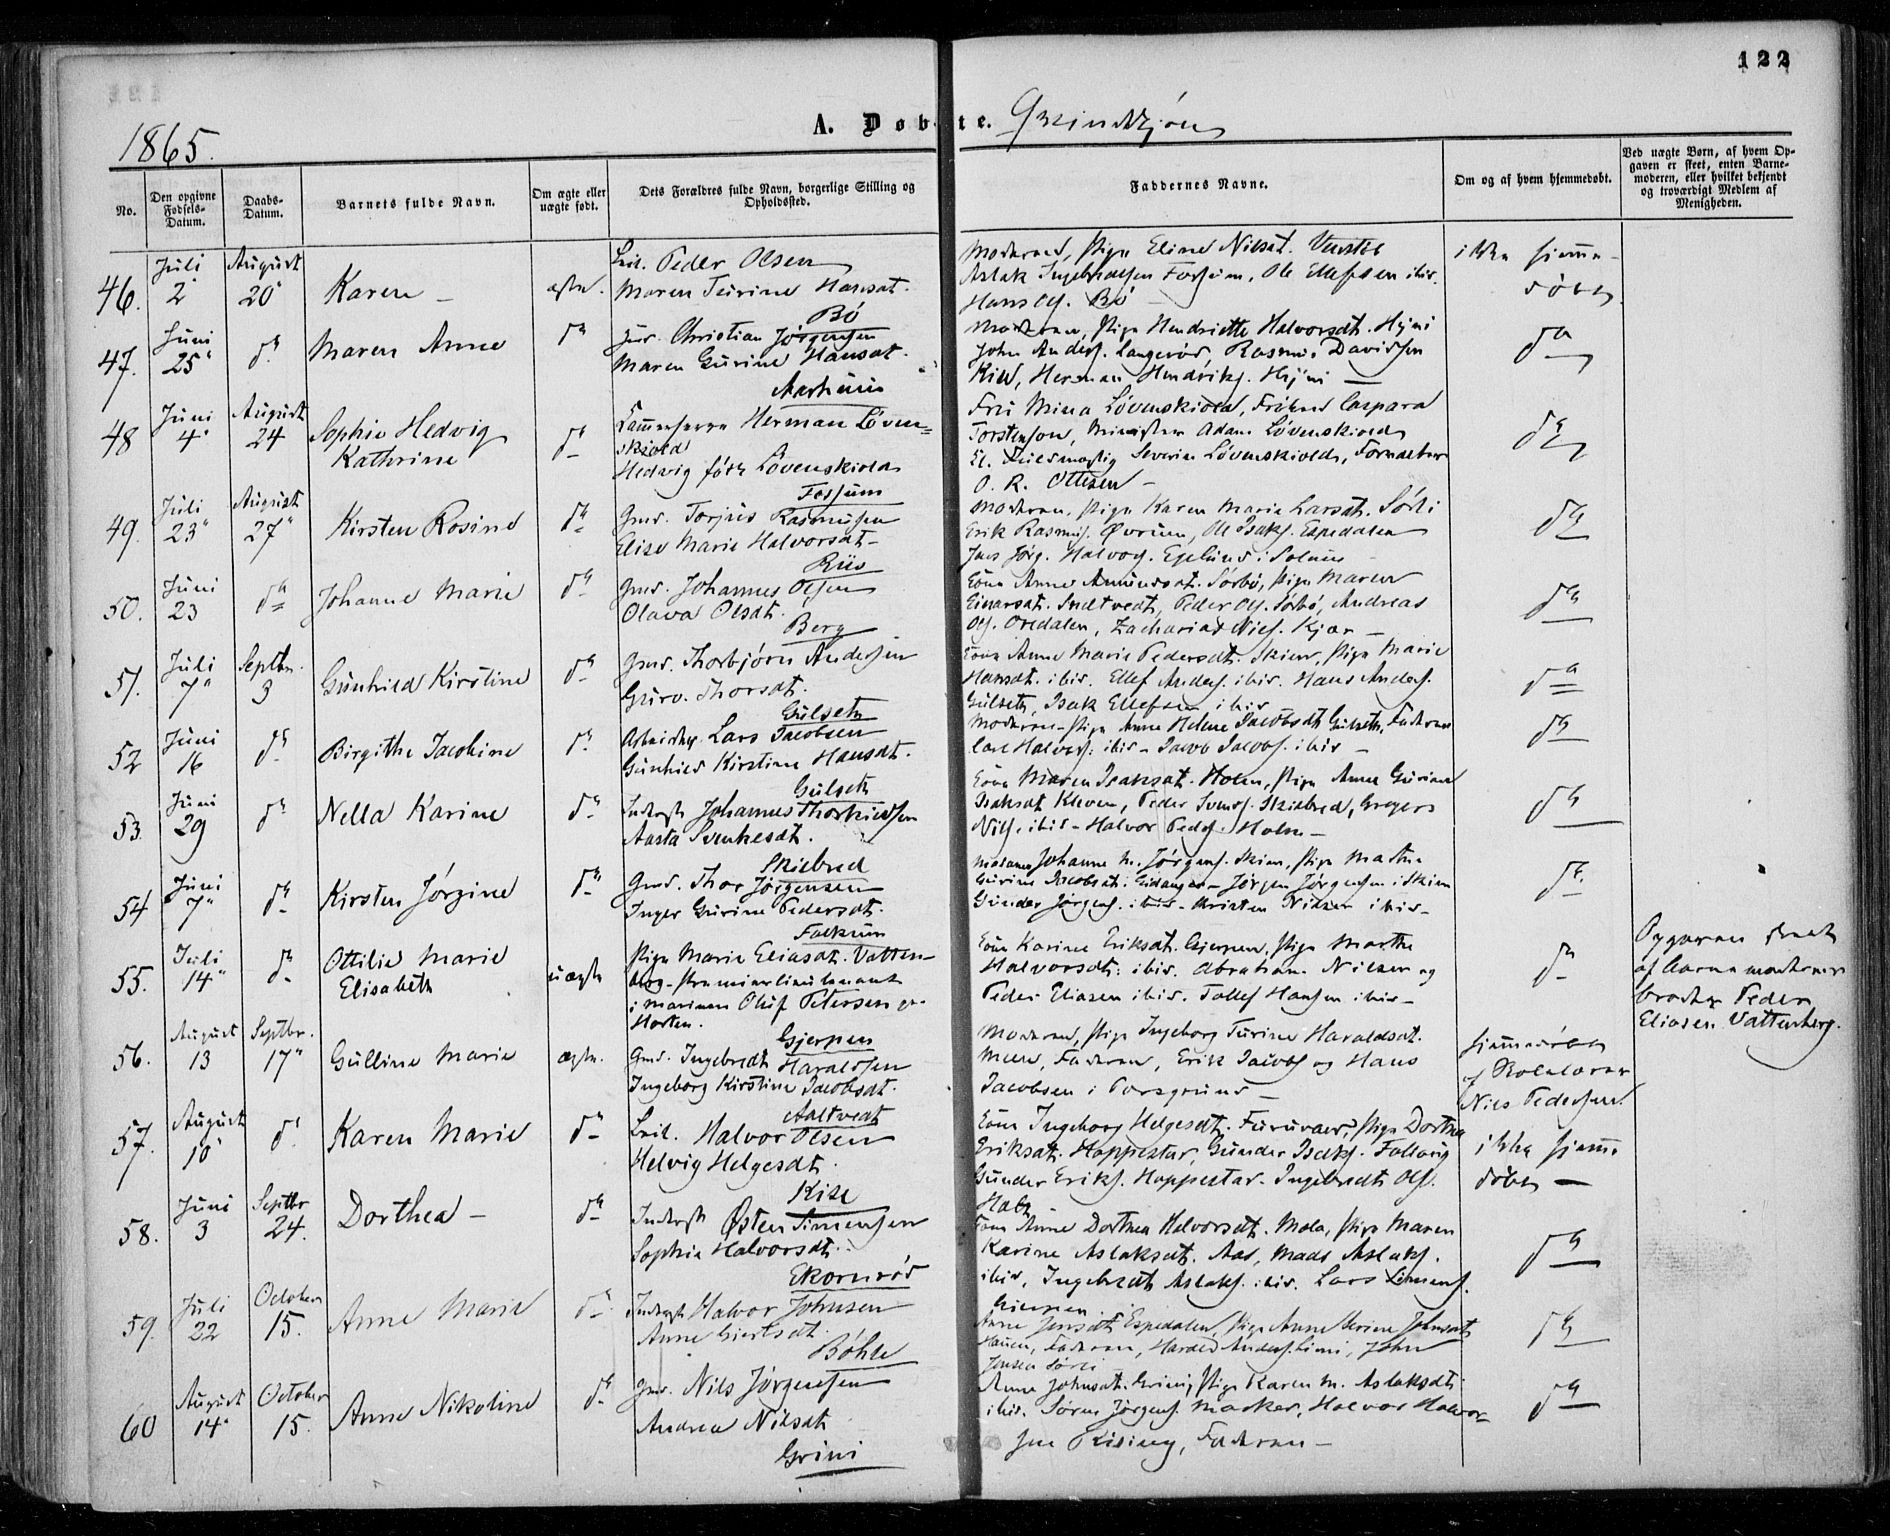 122
1865.
A. Døbte. Qvindkjøn
No.
Den opgivne Fødsels-Datum.
Daabs-Datum.
Barnets fulde Navn.
Om ægte eller uægte født.
Dets Forældres fulde Navn, borgerlige Stilling og Opholdssted.
Faddernes Navne.
Om og af hvem hjemmedøbt.
Ved uægte Børn, af hvem Opgaven er skeet, enten Barnemoderen, eller hvilket bekjendt og troværdigt Medlem af Menigheden.
46. Juli 2 August 20 Karen – ægte.
Peder Olsen
Maren Turine Hansdt.
Bö
Moderen, Pige Eline Nilsdt.
Aslak Ingebretsen Fossum, Ole Ellefsen ibid.
Hans Ols. Bö
ikke hjemmedöbt
47. Juni 25 do Maren Anne do
Christian Jørgensen
Maren Gurine Hansdt.
Aarhuus
Moderen, Pige Henriette Halvorsdt.
John Anders. Langerød, Rasmus Davidsen
Herman Hendriks.
do
48 Juni 4 August 24 Sophie Hedvig Kathrine do
Kammerherre Herman Løvenskiold
Hedvig født Løvenskiold
Fossum
Fru Mina Løvenskiold, Frøken Caspara
Torstenson, Minister Adam Løvenskiold
Severin Løvenskiold, Forvalter
O. R. Ottesen –
do
49. Juli 23 August 27 Kirsten Rosine do
Gmd. Torjus Rasmusen
Elise Marie Halvorsdt.
Riis
Moderen, Pige Karen Marie Larsdt.
Erik Rasmus. Øvrum, Ole Isaks. Espedalen
do
50. Juni 23 do Johanne Marie do
Gmd. Johannes Olsen
Olava Olsdt.
Berg
Kone Anne Amundsdt. Sørbö, Pige Maren
Einarsdt. Peder Ols. Sørbö, Andreas
Ols. Zacharias Niels. Kjær –
do
51. Juli 7 Septbr. 3 Gunhild Kirstine do
Gmd. Thorbjörn Andersen
Guro Thorsdt.
Gulseth
Kone Anne Marie Pedersdt. Skien, Pige Marie
Hansdt. ibid. Ellef Anders. ibid. Hans Anders.
Gulseth, Isak Ellefsen ibid.
do
52 Juni 16 do Birgithe Jacobine do
Lars Jacobsen
Gunhild Kirstine Hansdt.
Gulseth
Moderen – Pige Anne Helene Jacobsdt. Gulseth, Faderen
Halvors. ibid – Jacob Jacobs. ibid –
do
53. Juni 29 do Nella Karine do
Inderst Johannes Thorkildsen
Aasta Svenkesdt.
Skilbred
Kone Maren Isaksdt. Holm, Pige Anne Gurine
Isaksdt. Kleven, Peder Svends. Skilbred, Gregers
Nils. ibid – Halvor Peders. Holm –
do
54 Juni 7 do Kirsten Jörgine do
Gmd. Thor Jörgensen
Inger Gurine Pedersdt.
Falkum
Madame Johanne M. Jörgens. Skien, Pige Marthe
Gurine Jacobsdt. Eidanger – Jörgen Jörgensen i Skien
Gunder Jörgens. ibid – Kristen Nilsen ibid –
do
55. Juli 14 do Ottilie Marie Elisabeth uægte
Pige Marie Eliasdt. Vattenberg – Premierlieutenant
i Marinen Oluf Petersen
Horten.
Gjerpen
Kone Karine Eriksdt. Gjerpen, Pige Marthe
Halvorsdt. ibid. Abraham Nilsen og
Peder Eliasen ibid. Tollef Hansen ibid –
do
Opgaven skeet
af Barnemoderens
broder Peder
Eliasen Vattenberg.
56. August 13 Septbr. 17 Gulline Marie ægte.
Gmd. Ingebredt Haraldsen
Ingeborg Kirstine Jacobsdt.
Aaltvedt
Moderen, Pige Ingeborg Turine Haraldsdt.
Faderen, Erik Jacobs og Hans
Jacobsen i Porsgrund –
hjemmedöbt
af Skolelærer
Nils Pedersen
57. August 10 do Karen Marie do
Halvor Olsen
Helvig Helgesdt.
Kise
Kone Ingeborg Helgesdt. Pige Dorthea
Eriksdt. Hoppestad, Gunder Isaks. Follaug
Gunder Eriks. Hoppestad – Ingebredt Ols.
ikke hjemmedöbt –
58. Juni 3 Septbr 24. Dorthea – do
Inderst Østen Simensen
Sophie Halvorsdt.
Ekornröd
Kone Anne Dorthea Halvorsdt. Mæla, Pige Maren
Karine Aslaksdt. Aas, Mads Aslaks.
ibid, Ingebredt Aslaks. ibid. Lars Simens.
Gjerpen
do
59. Juli 22 October 15. Anne Marie do
Inderst Halvor Johnsen
Anne Giertsdt.
Böhle
Anne Jensdt. Espedalen, Pige Anne Johnsdt
Faderen, Harald Anders. John
Jensen
do
60 August 14 October 15. Anne Nikoline do
Gmd. Nils Jørgensen
Andrea Nilsdt
Grini
Anne Johnsdt. Grini, Pige Karen M. Aslaksdt.
ibid. Søren Jørgens. Halvor Halvorsen
Rising, Faderen –
do